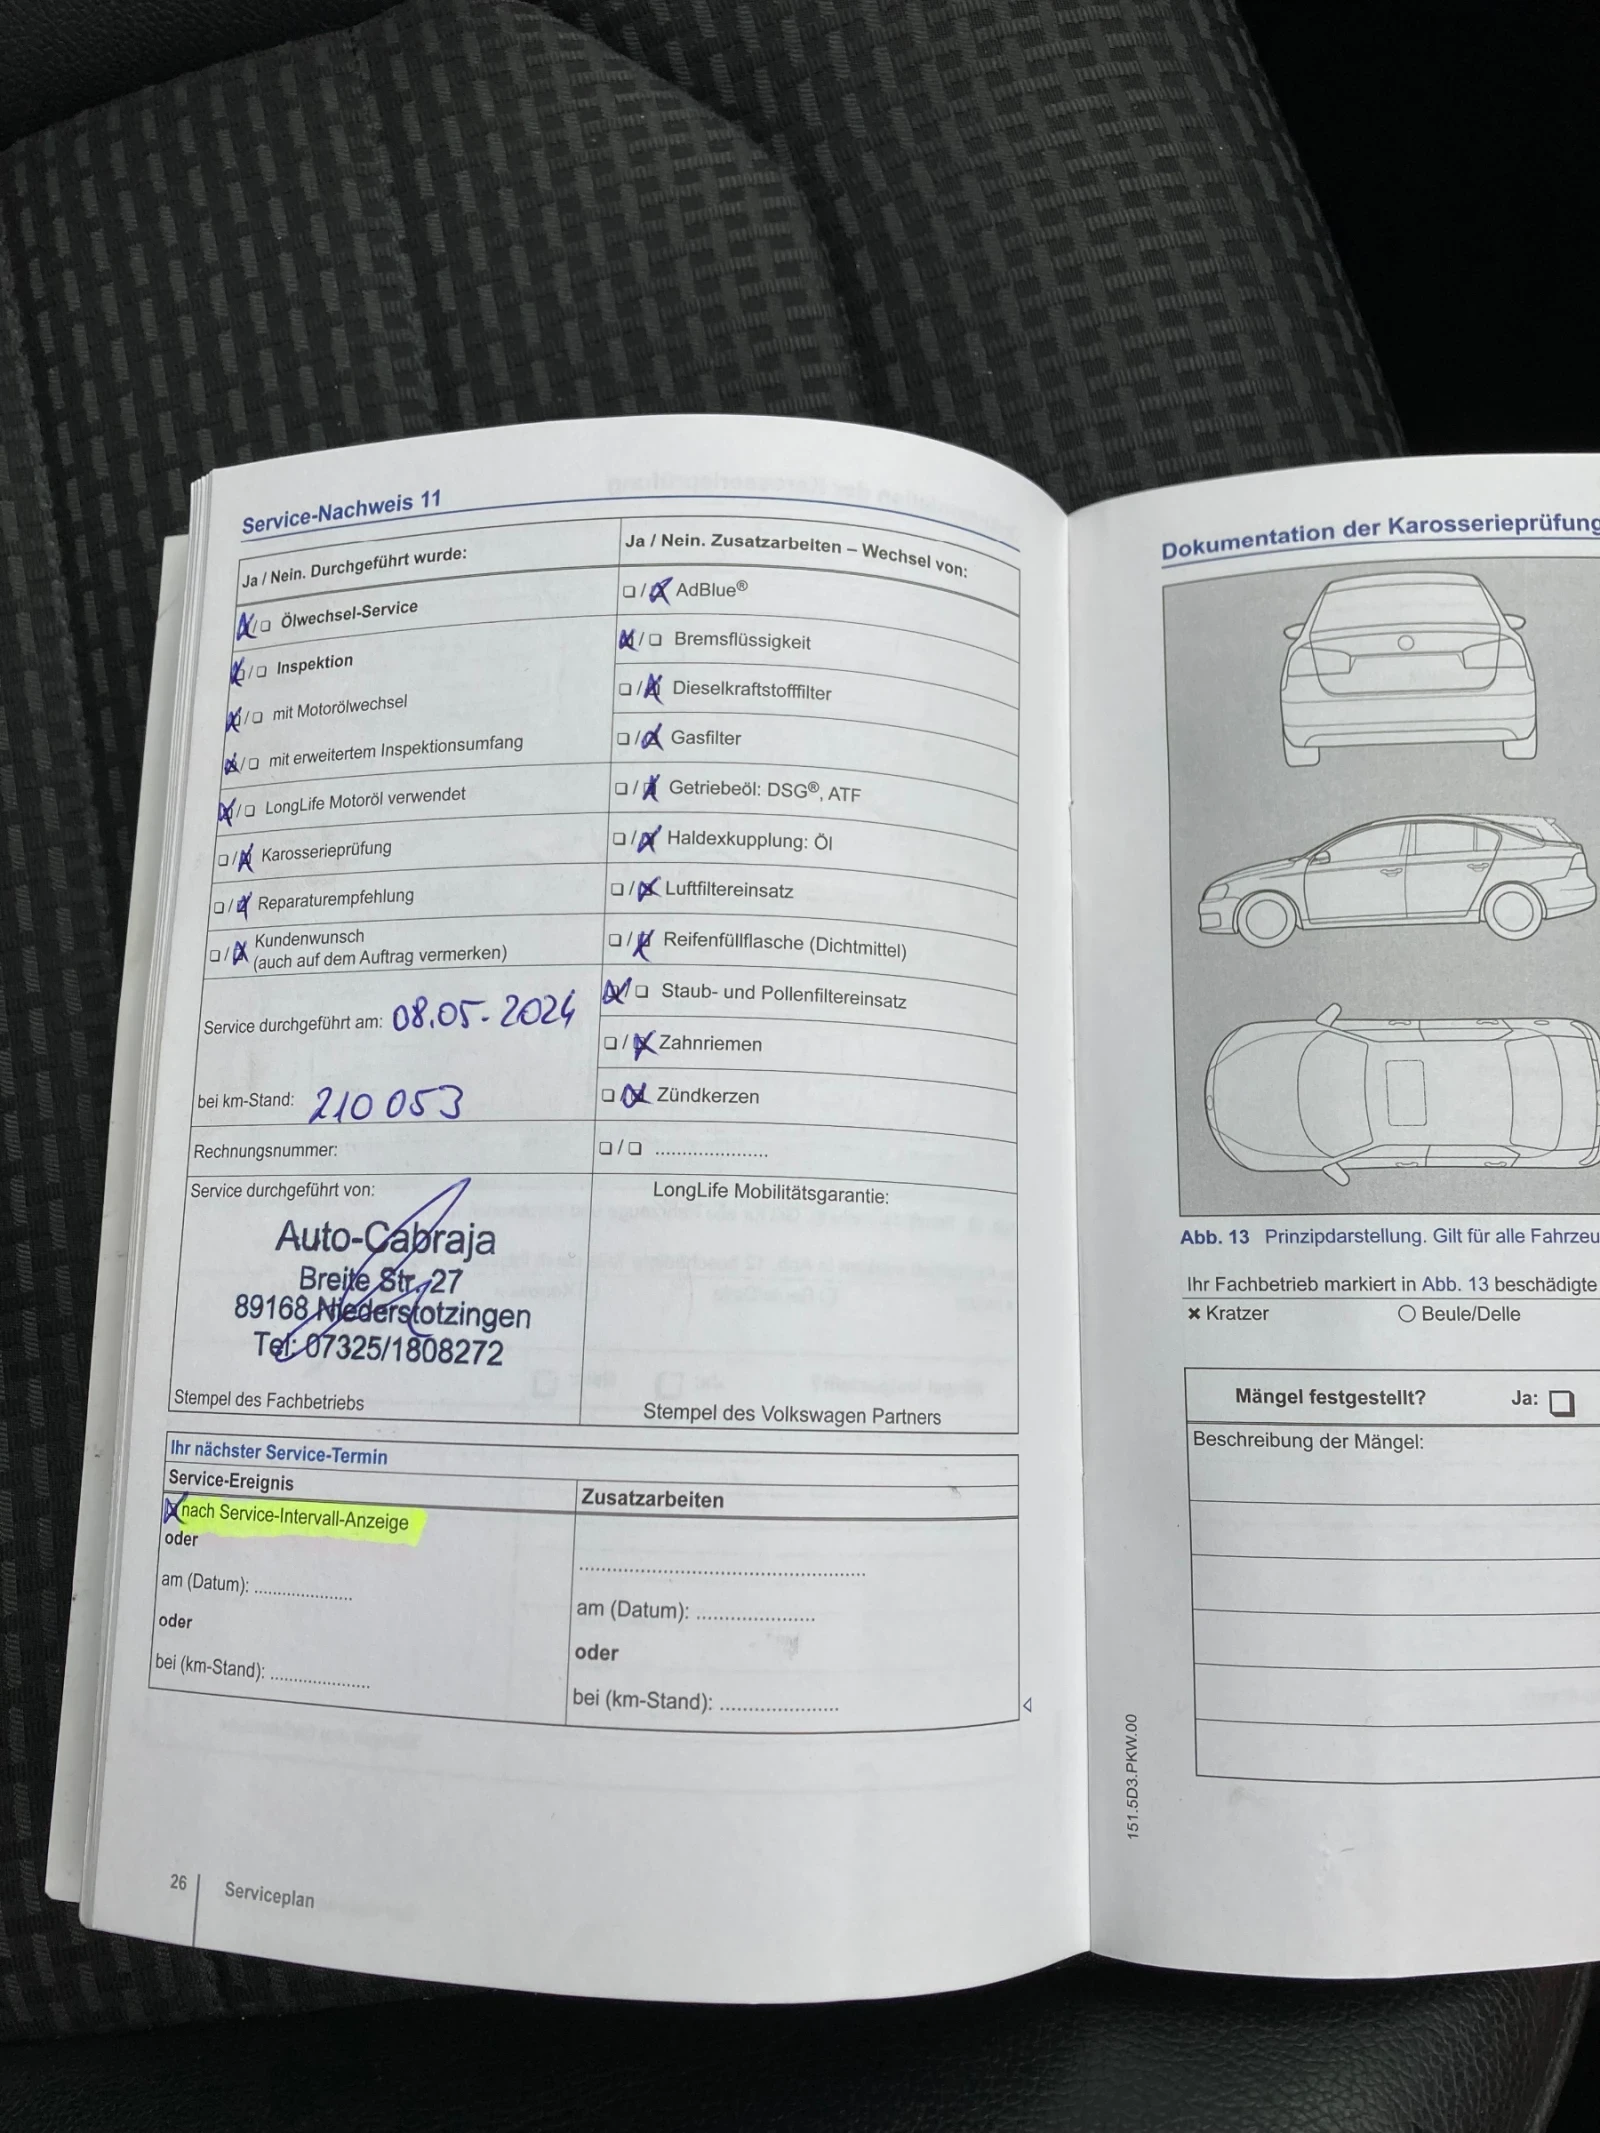 Service-Nachweis 11
Ja / Nein. Durchgeführt wurde:
Ölwechsel-Service
Inspektion
mit Motorölwechsel
mit erweitertem Inspektionsumfang
LongLife Motoröl verwendet
Karosserieprüfung
Reparaturempfehlung
Kundenwunsch
(auch auf dem Auftrag vermerken)
Service durchgeführt am: 08.05.2024
bei km-Stand: 210 053
Rechnungsnummer:
Service durchgeführt von:
Auto-Cabraja
Breite Str. 27
89168 Niederstotzingen
Tel: 07325/1808272
Stempel des Fachbetriebs
Ja / Nein. Zusatzarbeiten – Wechsel von:
AdBlue®
Bremsflüssigkeit
Dieselkraftstofffilter
Gasfilter
Getriebeöl: DSG®, ATF
Haldexkupplung: Öl
Luftfiltereinsatz
Reifenfüllflasche (Dichtmittel)
Staub- und Pollenfiltereinsatz
Zahnriemen
Zündkerzen
LongLife Mobilitätsgarantie:
Stempel des Volkswagen Partners
Ihr nächster Service-Termin
Service-Ereignis
nach Service-Intervall-Anzeige
oder
am (Datum):
oder
bei (km-Stand):
Zusatzarbeiten
am (Datum):
oder
bei (km-Stand):
26
Serviceplan
Dokumentation der Karosserieprüfung
Abb. 13 Prinzipdarstellung. Gilt für alle Fahrzeu
Ihr Fachbetrieb markiert in Abb. 13 beschädigte
Kratzer
Beule/Delle
Mängel festgestellt? Ja:
Beschreibung der Mängel:
151.5D3.PKW.00